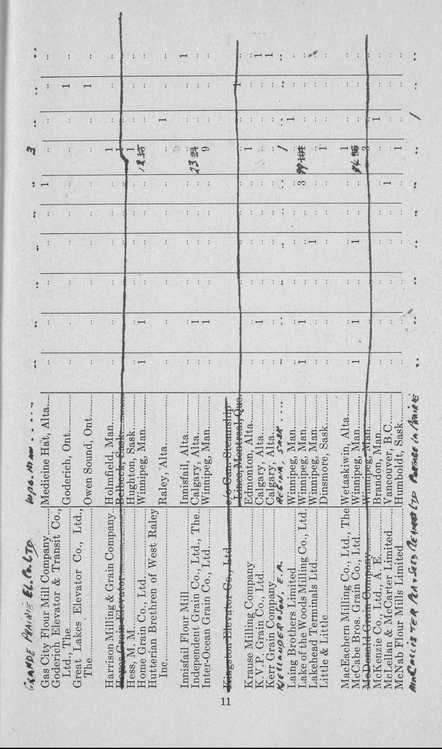 GRANDE PRAIRIE EL. Co. LTD WPG. MAN ..... .. 3 ..
Gas City Flour Mill Company Medicine Hat, Alta. 1
Goderich Elevator & Transit Co.,
Ltd., The Goderich, Ont. 1
Great Lakes Elevator Co., Ltd.,
The Owen Sound, Ont. 1
Harrison Milling & Grain Company Holmfield, Man. 1
Hess, M. M. Hughton, Sask. 1
Home Grain Co., Ltd. Winnipeg, Man. 1 1
Hutterian Brethren of West Raley
Inc. Raley, Alta. 1
Innisfail Flour Mill Innisfail, Alta. 1
Independent Grain Co., Ltd., The Calgary, Alta. 1 23
Inter-Ocean Grain Co., Ltd. Winnipeg, Man. 1 9
Kingston Elevator Co., Ltd. Steamship
Lines, Montreal, Que. 1
Krause Milling Company Edmonton, Alta. 1
K.V.P. Grain Co., Ltd. Calgary, Alta. 1 1
Kerr Grain Company Calgary, Alta. 1
REGINA, SASK 1
Laing Brothers Limited Winnipeg, Man. 1
Lake of the Woods Milling Co., Ltd. Winnipeg, Man. 1 1 3
Lakehead Terminals Ltd. Winnipeg, Man. 1
Little & Little Dinsmore, Sask. 1
MacEachern Milling Co., Ltd., The Wetaskiwin, Alta. 1
McCabe Bros. Grain Co., Ltd. Winnipeg, Man. 1 1 1
McDonald Grain Company Winnipeg, Man. 3
McKenzie Co., Ltd., A. E. Brandon, Man. 1
McLellan & McCarter Limited Vancouver, B.C. 1
McNab Flour Mills Limited Humboldt, Sask. 1
MACALISTER PEA & SEED CLEANERS LTD PORTAGE LA PRAIRIE 1
11